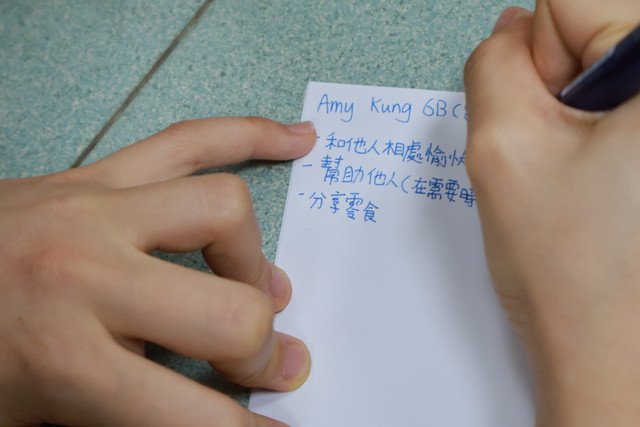 Amy Kung 6B(
- 和他人相處愉快
- 幫助他人(在需要時
- 分享零食